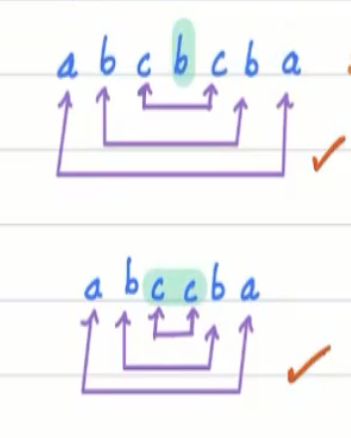 a b c b c b a
a b c c b a